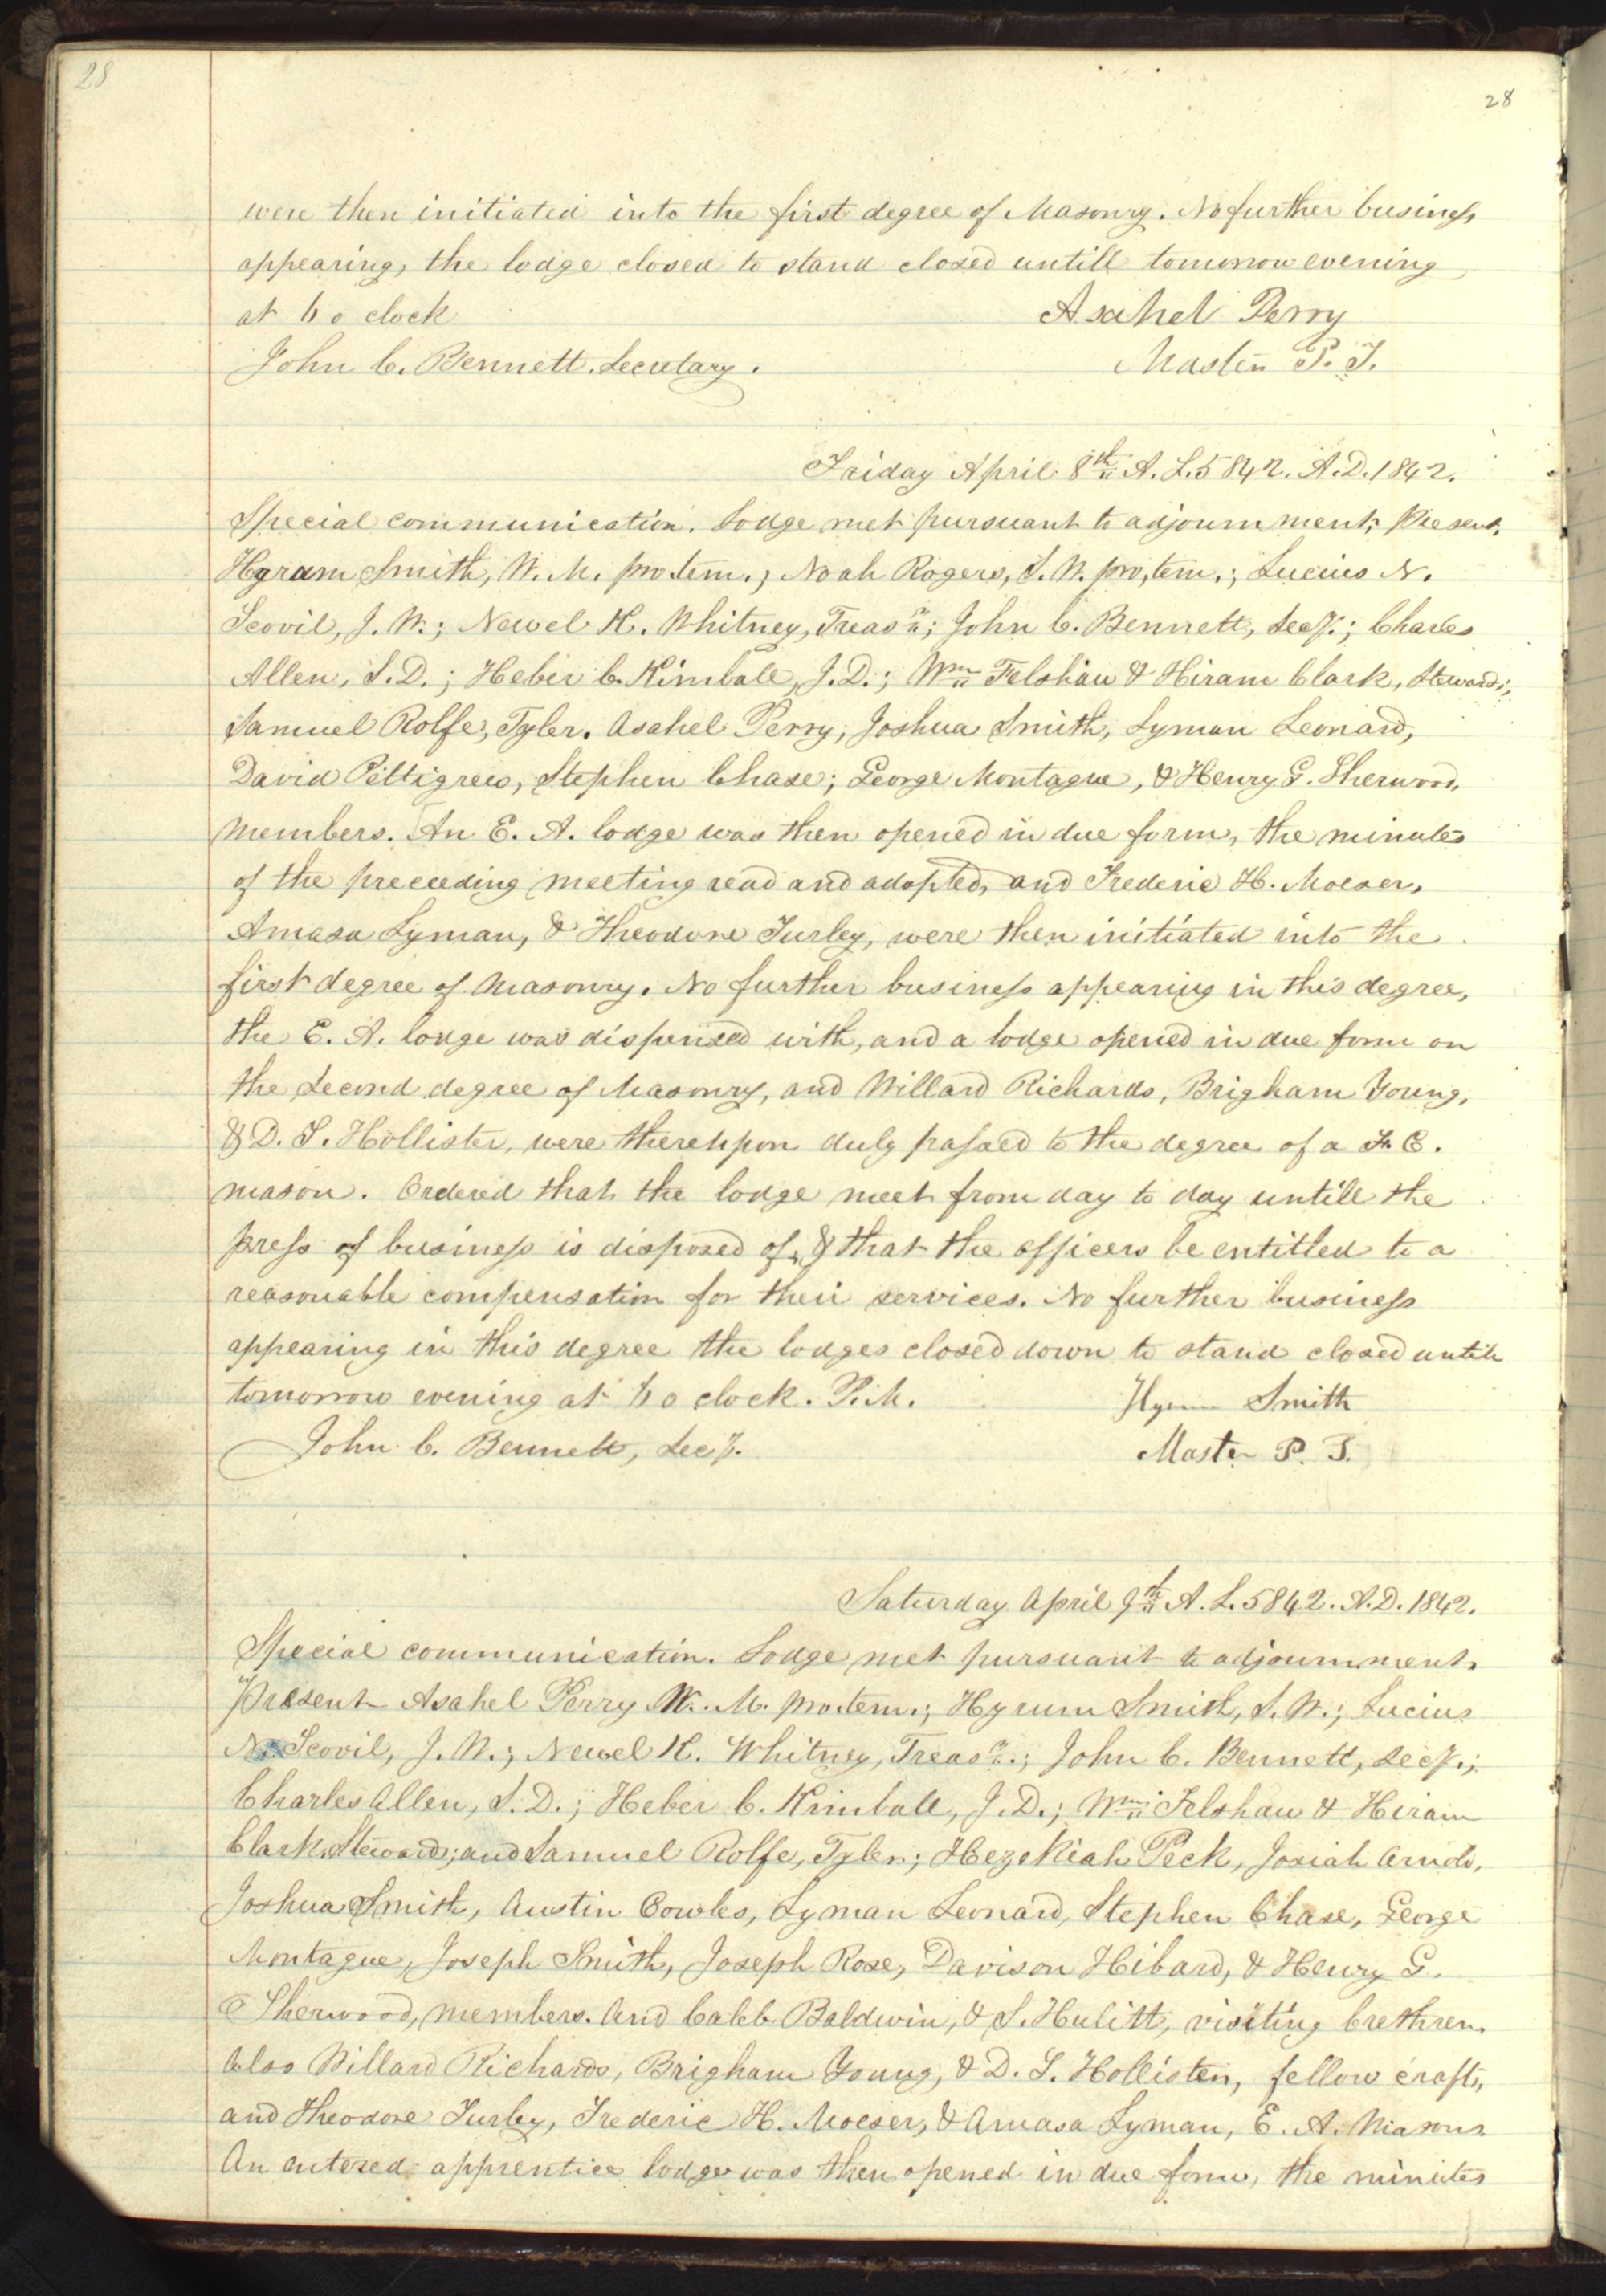 28
28
were then initiated into the first degree of Masonry. No further business
appearing, the lodge closed to stand closed untill tomorrow evening
at 6 o clock Asahel Perry
John C. Bennett. Secretary. Master P. T.
Friday April 8th A. L. 5842. A. D. 1842.
Special communication. Lodge met pursuant to adjournment; Present,
Hyrum Smith, W. M. pro. tem.; Noah Rogers, S. W. pro, tem.; Lucius N.
Scovil, J. W.; Newel K. Whitney, Treasr.; John C. Bennett, Secy.; Charles
Allen, S. D.; Heber C. Kimball, J. D.; Wm Felshaw & Hiram Clark, Stewards;
Samuel Rolfe, Tyler. Asahel Perry, Joshua Smith, Lyman Leonard,
David Pettigrew, Stephen Chase; George Montague, & Henry G. Sherwood,
members. An E. A. lodge was then opened in due form, the minutes
of the preceeding meeting read and adopted, and Frederic H. Moeser,
Amasa Lyman, & Theodore Turley, were then initiated into the
first degree of Masonry. No further business appearing in this degree,
the E. A. lodge was dispensed with, and a lodge opened in due form on
the Second degree of Masonry, and Willard Richards, Brigham Young,
& D. S. Hollister, were thereupon duly passed to the degree of a F. C.
mason. Ordered that the lodge meet from day to day untill the
press of business is disposed of, & that the officers be entitled to a
reasonable compensation for their services. No further business
appearing in this degree the lodges closed down to stand closed untill
tomorrow evening at 6 o clock. P. M. Hyrum Smith
John C. Bennett, Secy. Master P. T.
Saturday April 9th A. L. 5842. A. D. 1842.
Special communication. Lodge met pursuant to adjournment.
Present Asahel Perry W. M. pro. tem.; Hyrum Smith, S. W.; Lucius
N. Scovil, J. W.; Newel K. Whitney, Treasr.; John C. Bennett, Secy.;
Charles Allen, S. D.; Heber C. Kimball, J. D.; Wm Felshaw & Hiram
Clark, Stewards; and Samuel Rolfe, Tyler; Hezekiah Peck, Josiah Arnold,
Joshua Smith, Austin Cowles, Lyman Leonard, Stephen Chase, George
Montague, Joseph Smith, Joseph Rose, Davison Hibard, & Henry G.
Sherwood, members. And Caleb Baldwin, & S. Hulitt, visiting brethren.
Also Willard Richards, Brigham Young, & D. S. Hollister, fellow crafts,
and Theodore Turley, Frederic H. Moeser, & Amasa Lyman, E. A. Masons.
An entered apprentice lodge was then opened in due form, the minutes